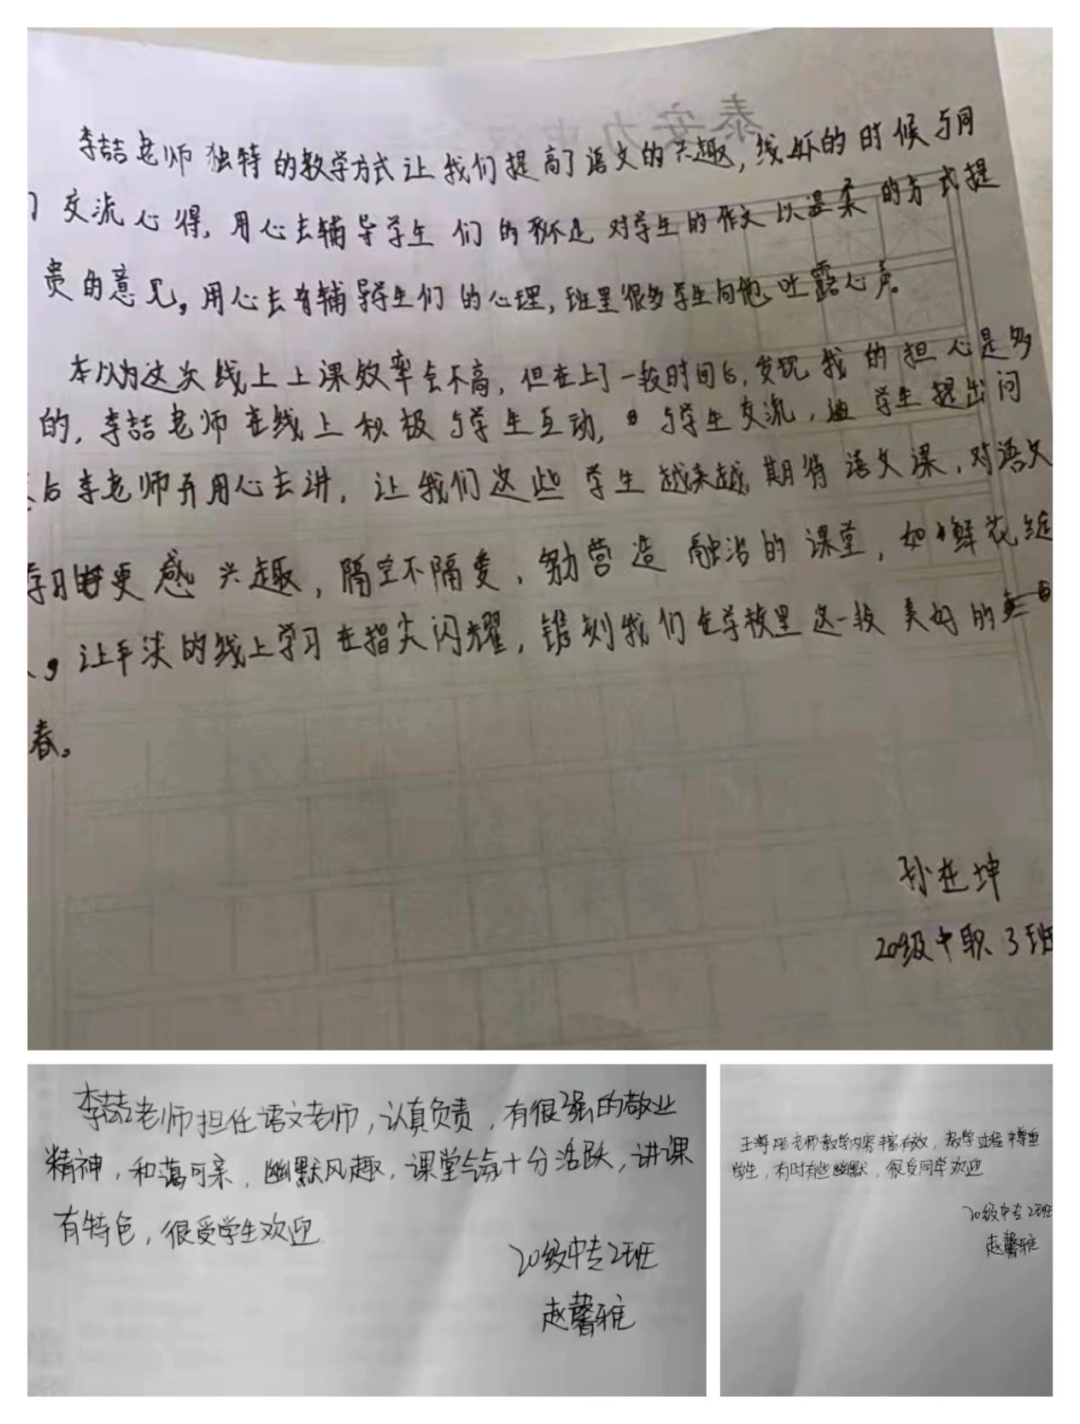 李喆老师独特的教学方式让我们提高了语文的兴趣,线下的时候与同
交流心得,用心去辅导学生们的不足 对学生的作文以温柔的方式提
贵的意见。用心去辅导学生们的心理,班里很多学生向他吐露心声。
本以为这次线上上课效率会不高,但在上了一段时间后,发现我的担心是多
的,李喆老师在线上积极与学生互动,与学生交流,学生提出问
后李老师再用心去讲,让我们这些学生越来越期待语文课,对语文
学习更感兴趣,隔空不隔爱,营造融洽的课堂,如鲜花绽
,让平淡的线上学习在指尖闪耀,镌刻我们在学校里这一段美好的
春。
孙在坤
20级中职3班
李喆老师担任语文老师,认真负责,有很强的敬业
精神,和蔼可亲,幽默风趣,课堂气氛十分活跃,讲课
有特色,很受学生欢迎
20级中专2班
赵馨雅
王 老师教学内容丰富有效,教学过程中尊重
学生,有时有些幽默,很受同学欢迎
20级中专2班
赵馨雅